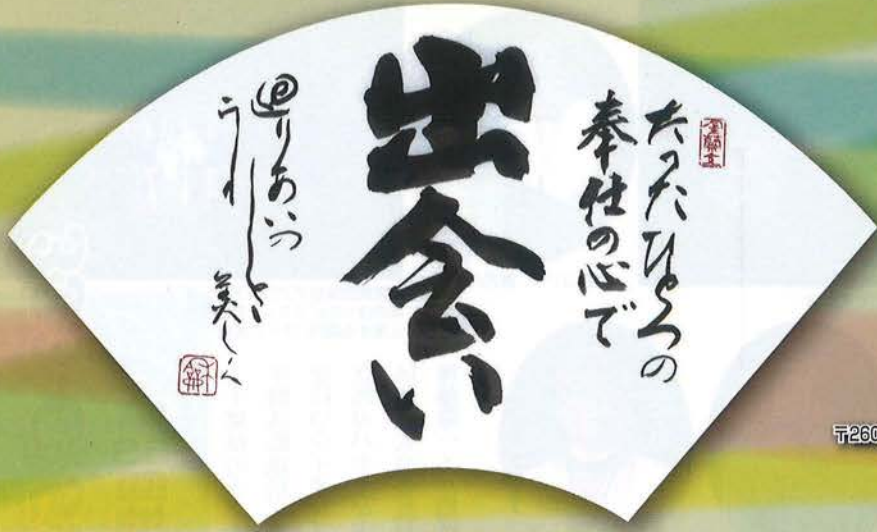 たったひとつの
奉仕の心で
出会い
廻りあいの
うれしさ
美しく
〒260